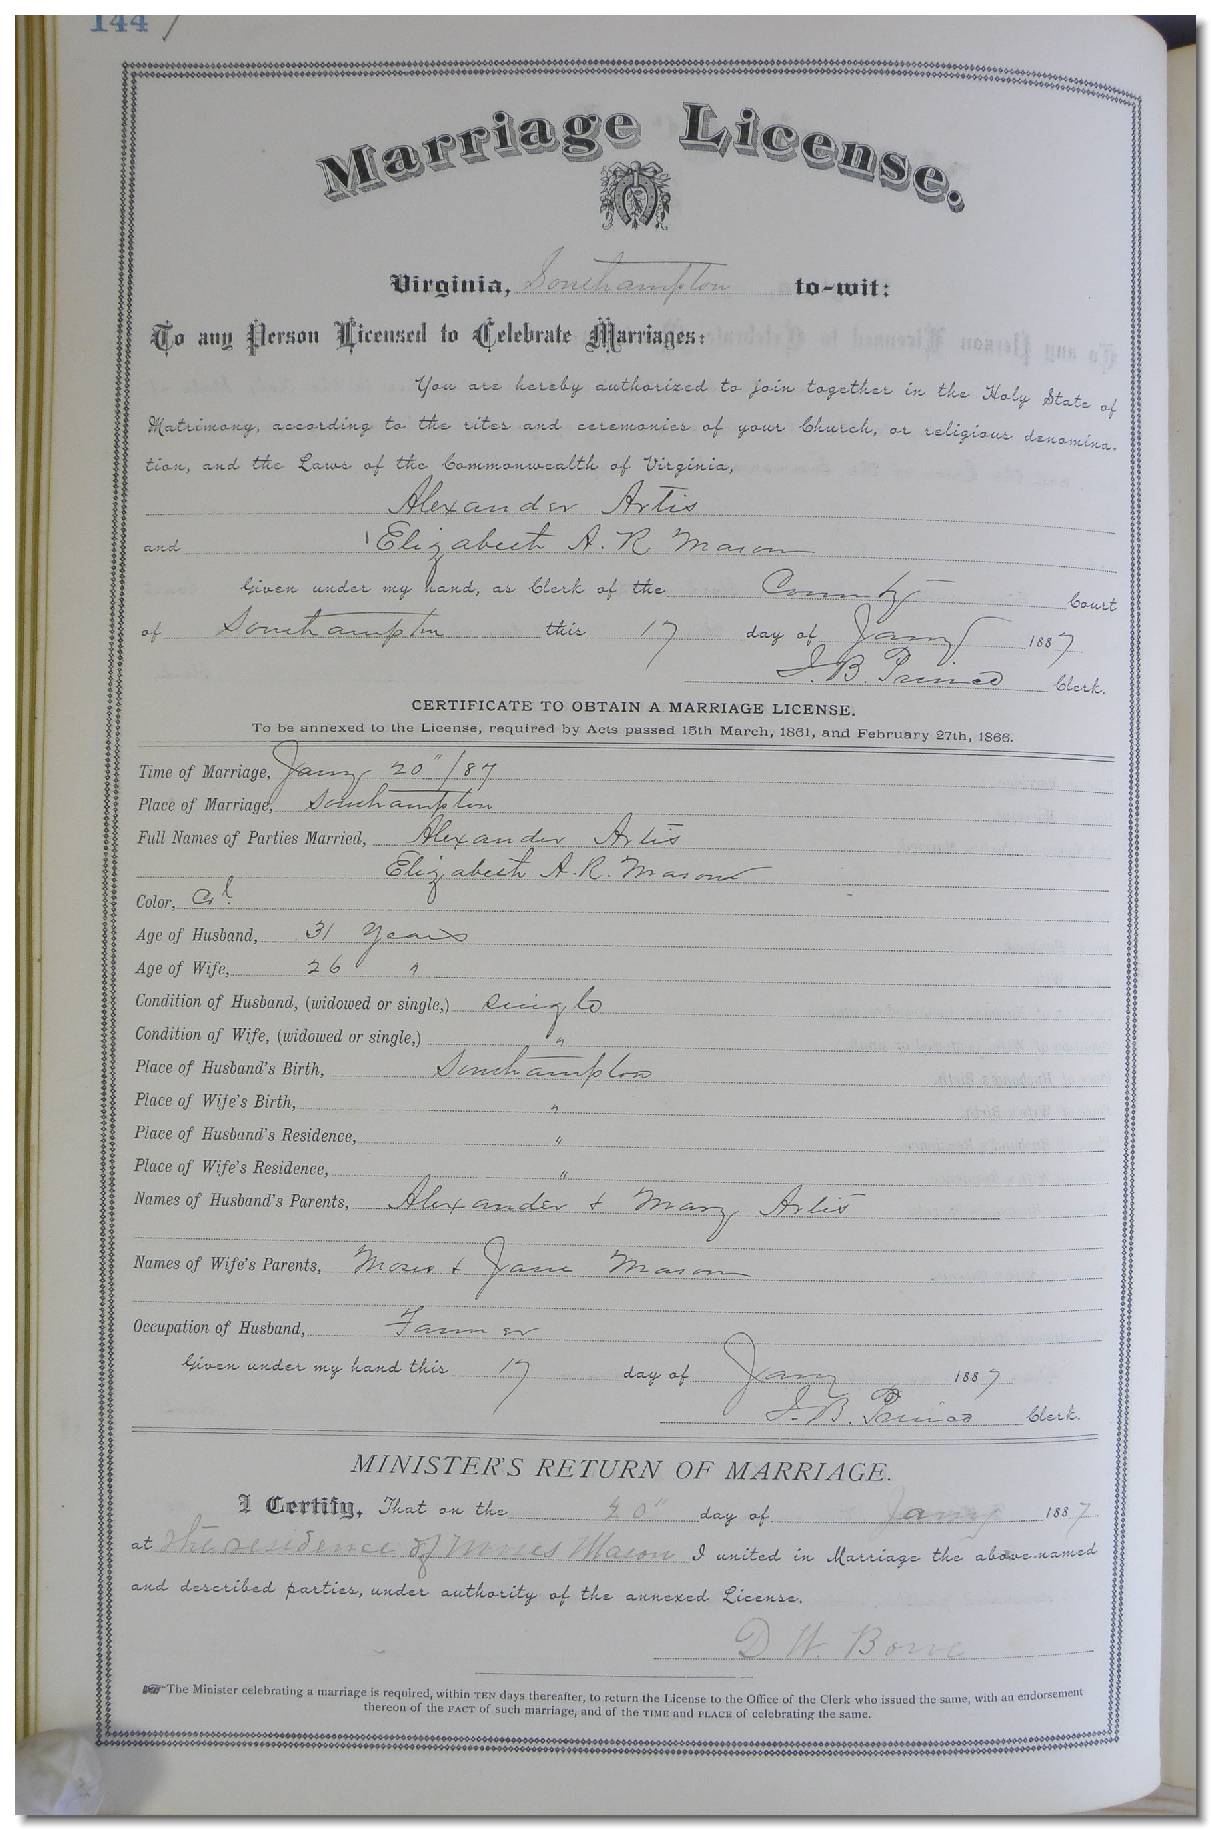 144
Marriage License.
Virginia, Southampton to-wit:
To any Person Licensed to Celebrate Marriages:
You are hereby authorized to join together in the Holy State of
Matrimony, according to the rites and ceremonies of your Church, or religious denomina-
tion, and the Laws of the Commonwealth of Virginia,
Alexander Artis
and Elizabeth A. R. Mason
Given under my hand, as Clerk of the County Court
of Southampton this 17 day of Jany 1887
J. B. Prince Clerk.
CERTIFICATE TO OBTAIN A MARRIAGE LICENSE.
To be annexed to the License, required by Acts passed 15th March, 1861, and February 27th, 1866.
Time of Marriage, Jany 20"/87
Place of Marriage, Southampton
Full Names of Parties Married, Alexander Artis
Elizabeth A. R. Mason
Color, Col
Age of Husband, 31 Years
Age of Wife, 26 "
Condition of Husband, (widowed or single,) single
Condition of Wife, (widowed or single,) "
Place of Husband's Birth, Southampton
Place of Wife's Birth, "
Place of Husband's Residence, "
Place of Wife's Residence, "
Names of Husband's Parents, Alexander & Mary Artis
Names of Wife's Parents, Moses & Jane Mason
Occupation of Husband, Farmer
Given under my hand this 17 day of Jany 1887
J. B. Prince Clerk.
MINISTER'S RETURN OF MARRIAGE.
I Certify, That on the 20" day of Jany 1887
at the residence of Moses Mason I united in Marriage the above-named
and described parties, under authority of the annexed License.
D W.
The Minister celebrating a marriage is required, within TEN days thereafter, to return the License to the Office of the Clerk who issued the same, with an endorsement
thereon of the FACT of such marriage, and of the TIME and PLACE of celebrating the same.